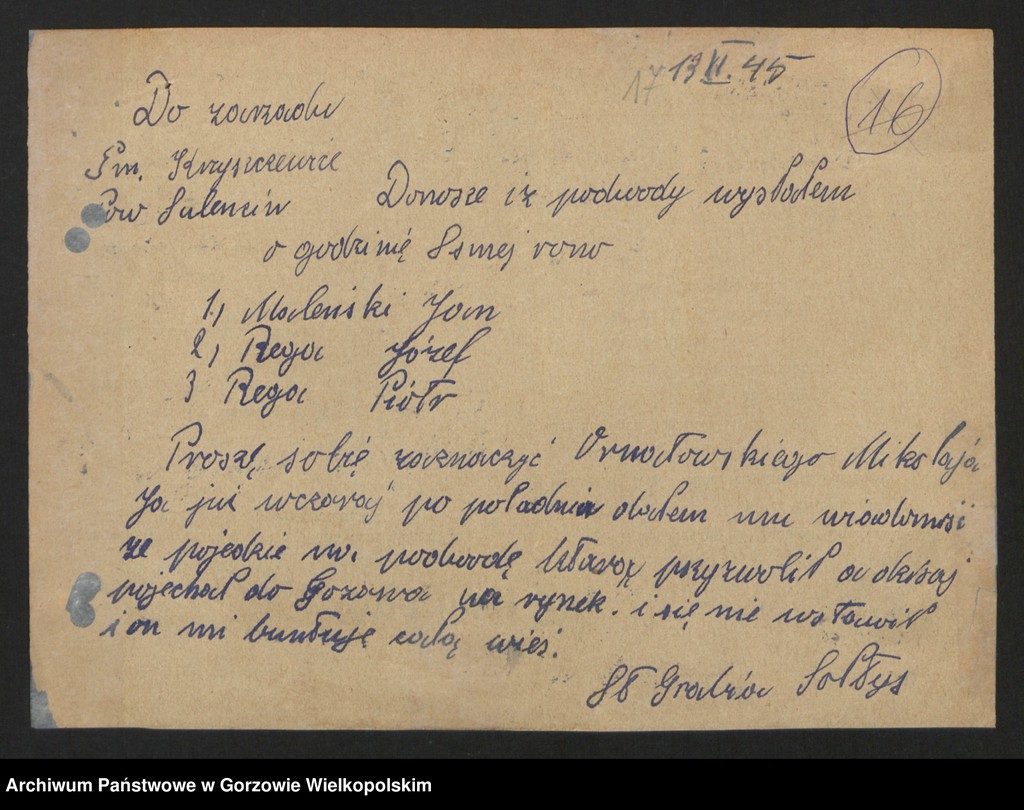 17 13 VI. 45
16
Do zarzadu
Gm. Krzyszczewice
Pow Sulencin
Donosze iż podwody wysłałem
o godzinię 8smej rano
1, Maleński Jan
2, Rega Józef
3 Rega Piótr
Proszę sobię zaznaczyć Ornatowskiego Mikołaja
Ja już wczoraj po południu dałem mu wiadomość
że pojedzie na podwodę którą przyzwolił a dzisaj
pojechał do Gozowa na rynek. i się nie wstawił
i on mi buntuję całą wieś.
St Gradzia Sołtys
Archiwum Państwowe w Gorzowie Wielkopolskim